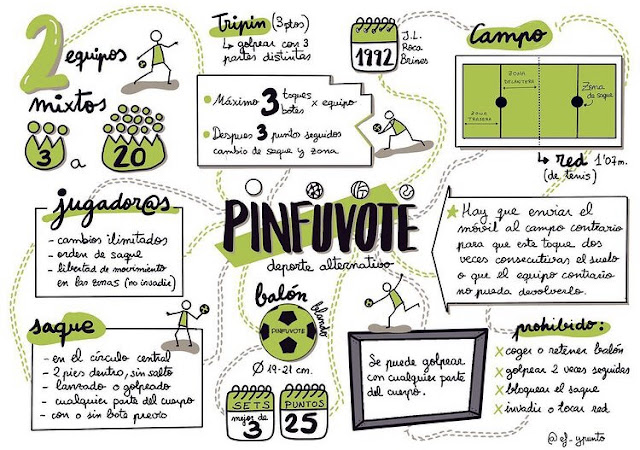 2 equipos
mixtos
3 a 20
Tripin (3 ptos)
↳ golpear con 3
partes distintas
• Máximo 3 toques
botes x equipo
• Despues 3 punto seguidos
cambio de saque y zona
1992
J.L.
Roca
Brines
Campo
ZONA
DELANTERA
ZONA
TRASERA
Zona
de saque
red 1'07m.
(de tenis)
jugador@s
- cambios ilimitados
- orden de saque
- libertad de movimiento
en las zonas (no invadir)
PINFUVOTE
deporte alternativo
Hay que enviar el
móvil al campo contrario
para que este toque dos
veces consecutivas el suelo
o que el equipo contrario
no pueda devolverlo.
saque
- en el círculo central
- 2 pies dentro, sin salto
- lanzado o golpeado
- cualquier parte del cuerpo
- con o sin bote previo
balón
blando
PINFUVOTE
Ø 19-21 cm.
SETS
mejor de
3
PUNTOS
25
Se puede golpear
con cualquier parte
del cuerpo.
prohibido:
x coger o retener balón
x golpear 2 veces seguidas
x bloquear el saque
x invadir o tocar red
@ef_ypunto